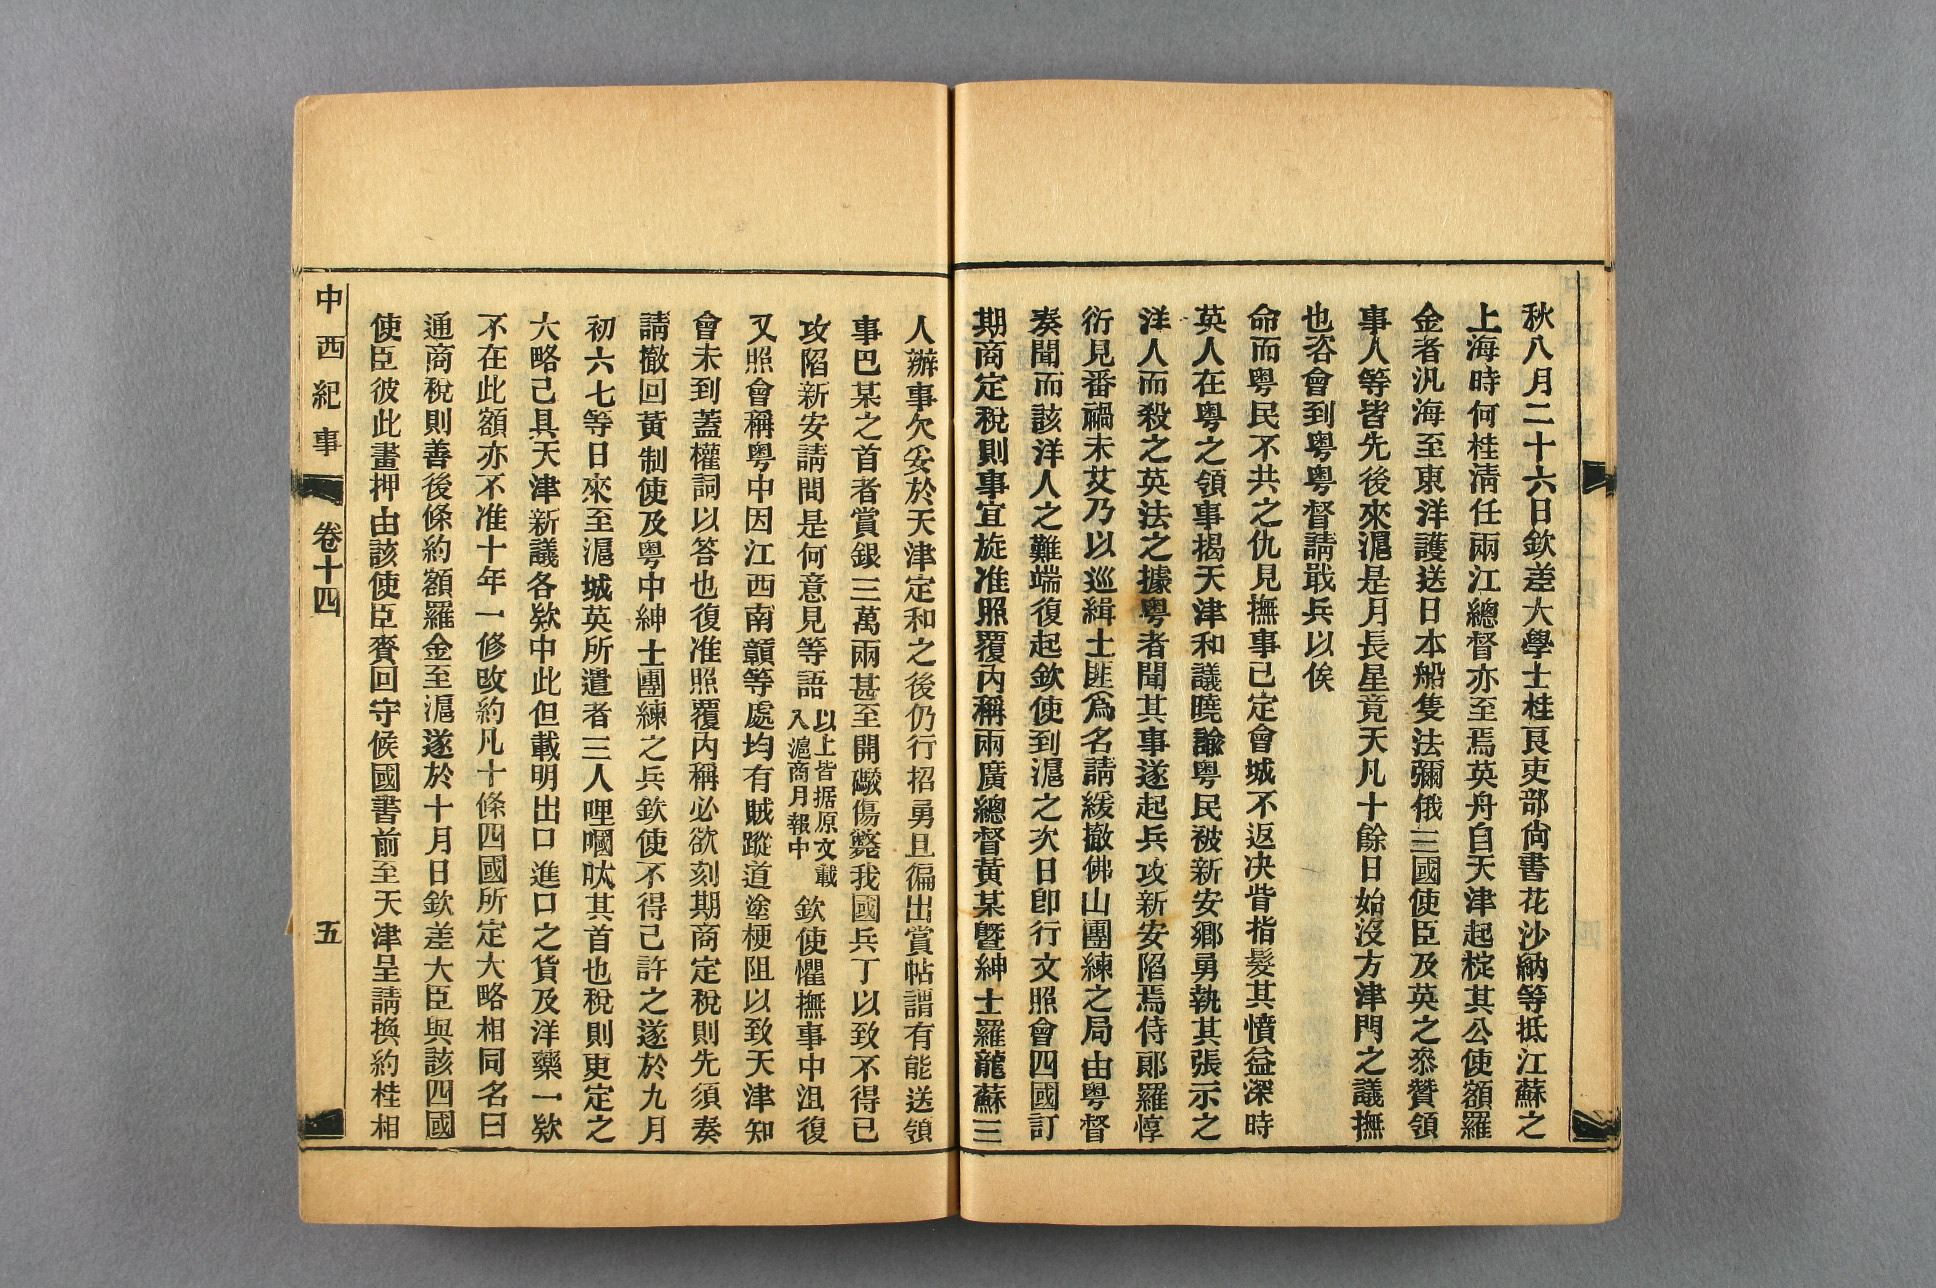 秋八月二十六日欽差大學士桂良吏部尙書花沙納等抵江蘇之
上海時何桂淸任兩江總督亦至焉英舟自天津起椗其公使額羅
金者汎海至東洋護送日本船隻法彌俄三國使臣及英之叅贊領
事人等皆先後來滬是月長星竟天凡十餘日始沒方津門之議撫
也咨會到粵粵督請戢兵以俟
命而粵民不共之仇見撫事已定會城不返决眥指髮其憤益深時
英人在粵之領事揭天津和議曉諭粵民被新安鄉勇執其張示之
洋人而殺之英法之據粵者聞其事遂起兵攻新安陷焉侍郞羅惇
衍見番禍未艾乃以巡緝土匪爲名請緩撤佛山團練之局由粵督
奏聞而該洋人之難端復起欽使到滬之次日卽行文照會四國訂
期商定稅則事宜旋准照覆內稱兩廣總督黃某曁紳士羅龍蘇三
人辦事欠妥於天津定和之後仍行招勇且徧出賞帖謂有能送領
事巴某之首者賞銀三萬兩甚至開礮傷斃我國兵丁以致不得已
攻陷新安請問是何意見等語以上皆据原文載入滬商月報中欽使懼撫事中沮復
又照會稱粵中因江西南贛等處均有賊蹤道塗梗阻以致天津知
會未到蓋權詞以答也復准照覆內稱必欲刻期商定稅則先須奏
請撤回黃制使及粵中紳士團練之兵欽使不得已許之遂於九月
初六七等日來至滬城英所遣者三人哩嘓呔其首也稅則更定之
大略已具天津新議各欵中此但載明出口進口之貨及洋藥一欵
不在此額亦不准十年一修改約凡十條四國所定大略相同名曰
通商稅則善後條約額羅金至滬遂於十月日欽差大臣與該四國
使臣彼此畫押由該使臣賚回守候國書前至天津呈請換約桂相
中西紀事
卷十四
五